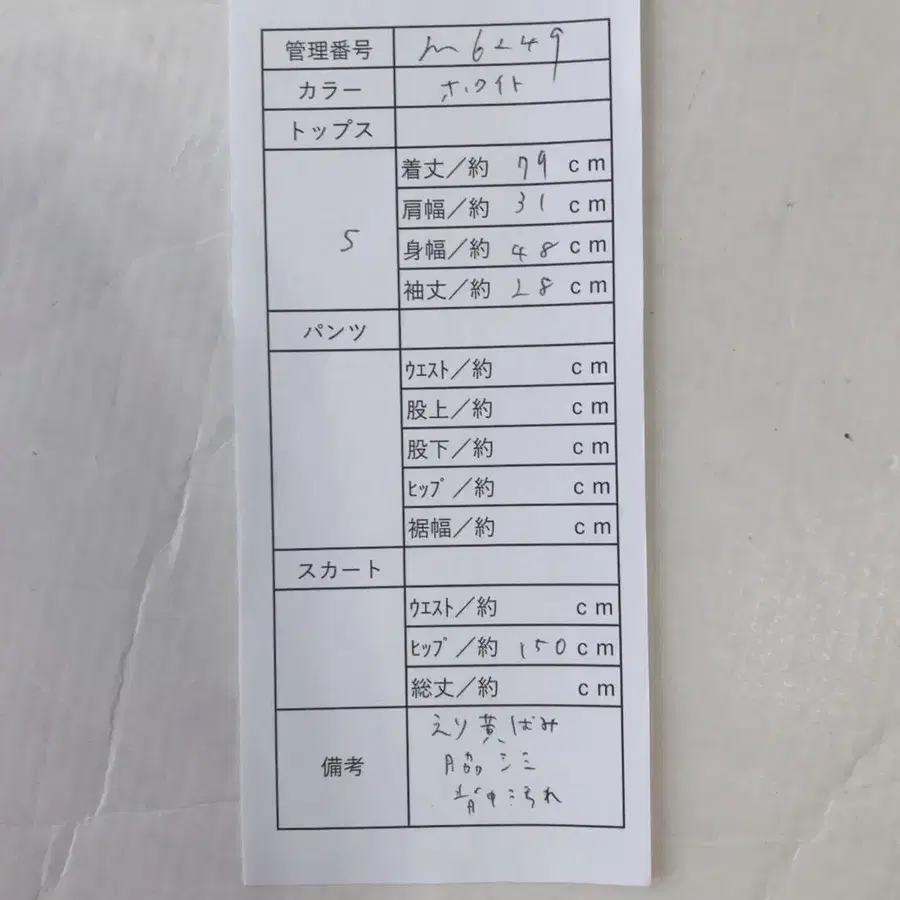 管理番号 m6249
カラー ホワイト
トップス
S
着丈／約 79 cm
肩幅／約 31 cm
身幅／約 48 cm
袖丈／約 28 cm
パンツ
ｳｴｽﾄ／約 cm
股上／約 cm
股下／約 cm
ﾋｯﾌﾟ／約 cm
裾幅／約 cm
スカート
ｳｴｽﾄ／約 cm
ﾋｯﾌﾟ／約 150cm
総丈／約 cm
備考
えり黄ばみ
脇シミ
背中汚れ